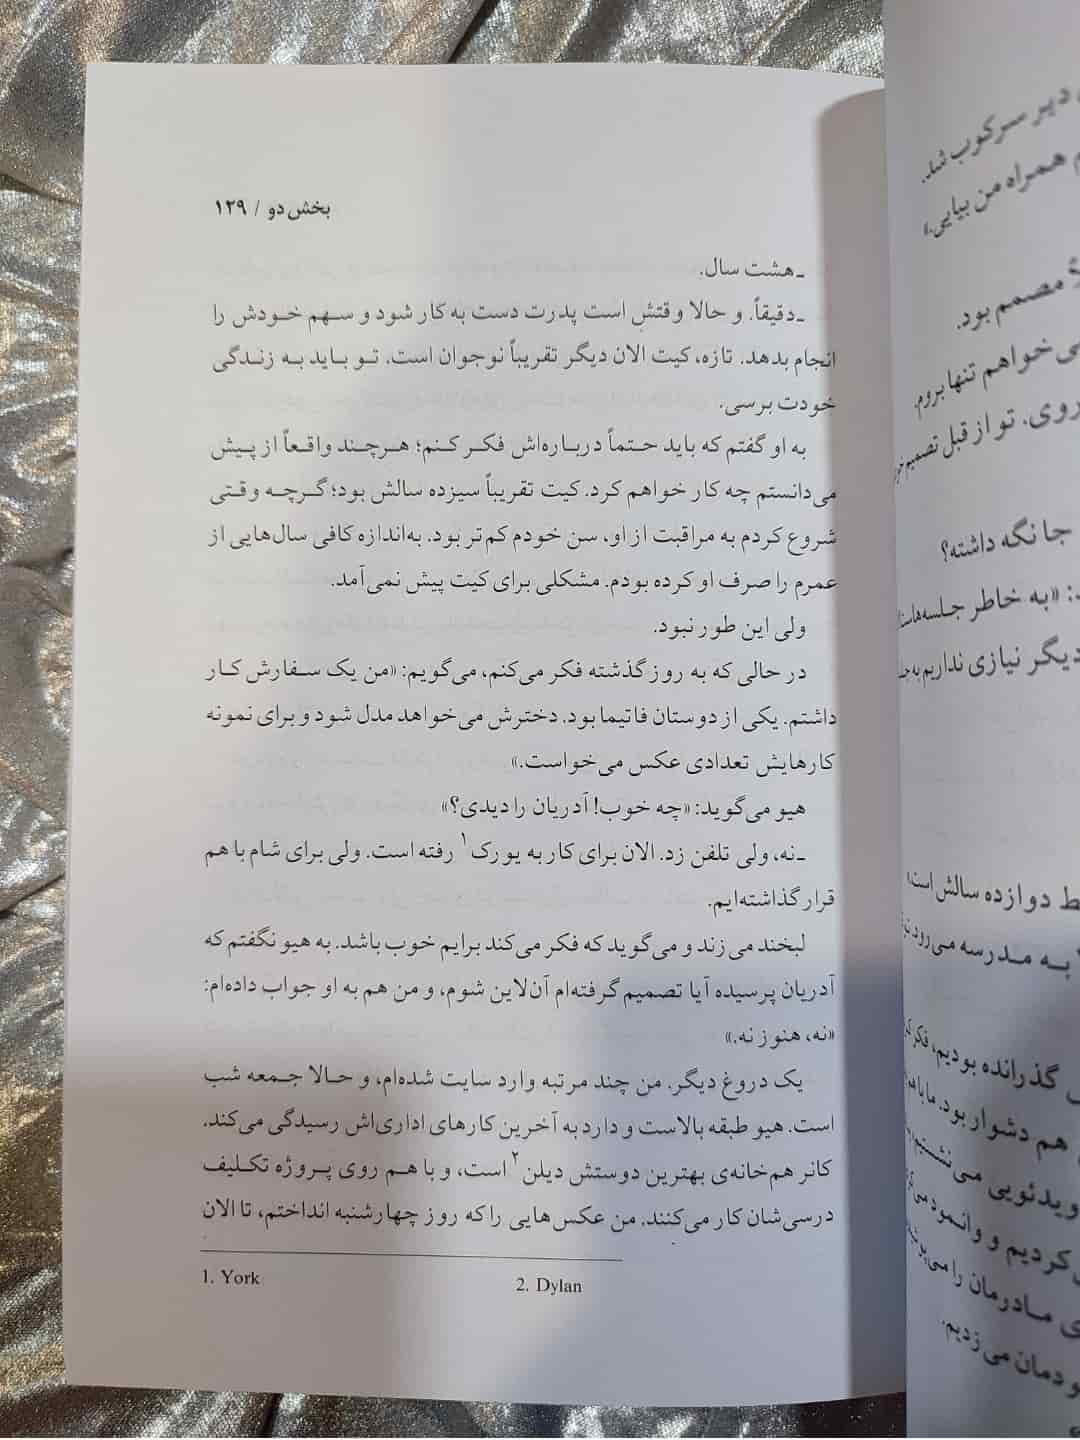 بخش دو / ۱۲۹
ـ هشت سال.
ـ دقیقاً. و حالا وقتش است پدرت دست به کار شود و سهم خودش را
انجام بدهد. تازه، کیت الان دیگر تقریباً نوجوان است. تو باید به زندگی
خودت برسی.
به او گفتم که باید حتماً درباره‌اش فکر کنم؛ هرچند واقعاً از پیش
می‌دانستم چه کار خواهم کرد. کیت تقریباً سیزده سالش بود؛ گرچه وقتی
شروع کردم به مراقبت از او، سن خودم کم‌تر بود. به‌اندازه کافی سال‌هایی از
عمرم را صرف او کرده بودم. مشکلی برای کیت پیش نمی‌آمد.
ولی این طور نبود.
در حالی که به روز گذشته فکر می‌کنم، می‌گویم: «من یک سفارش کار
داشتم. یکی از دوستان فاتیما بود. دخترش می‌خواهد مدل شود و برای نمونه
کارهایش تعدادی عکس می‌خواست.»
هیو می‌گوید: «چه خوب! آدریان را دیدی؟»
ـ نه، ولی تلفن زد. الان برای کار به یورک۱ رفته است. ولی برای شام با هم
قرار گذاشته‌ایم.
لبخند می‌زند و می‌گوید که فکر می‌کند برایم خوب باشد. به هیو نگفتم که
آدریان پرسیده آیا تصمیم گرفته‌ام آن‌لاین شوم، و من هم به او جواب داده‌ام:
«نه، هنوز نه.»
یک دروغ دیگر. من چند مرتبه وارد سایت شده‌ام، و حالا جمعه شب
است. هیو طبقه بالاست و دارد به آخرین کارهای اداری‌اش رسیدگی می‌کند.
کانر هم‌خانه‌ی بهترین دوستش دیلن۲ است، و با هم روی پروژه تکلیف
درسی‌شان کار می‌کنند. من عکس‌هایی را که روز چهارشنبه انداختم، تا الان
1. York 2. Dylan
دیر سرکوب شد.
همراه من بیایی.»
مصمم بود.
می‌خواهم تنها بروم.
روی. تو از قبل تصمیم
جا نگه داشته؟
«به خاطر جلسه‌ها
دیگر نیازی نداریم به
دوازده سالش است.
به مدرسه می‌رود
گذرانده بودیم، فکر
هم دشوار بود. ما با
ویدئویی می‌نشستیم
کردیم و وانمود
مادرمان را
می‌زدیم.